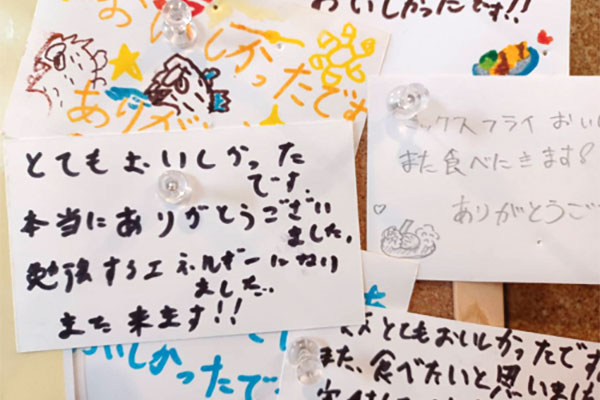 おいしかったです!!
おいしかったです
ありが
とてもおいしかった
です。
本当にありがとうござい
ました。
勉強するエネルギーになり
ました。
また来ます!!
ミックスフライ おい
また食べにきます
ありがとうご
おいしかったで
とてもおいしかったです
また、食べたいと思いまし